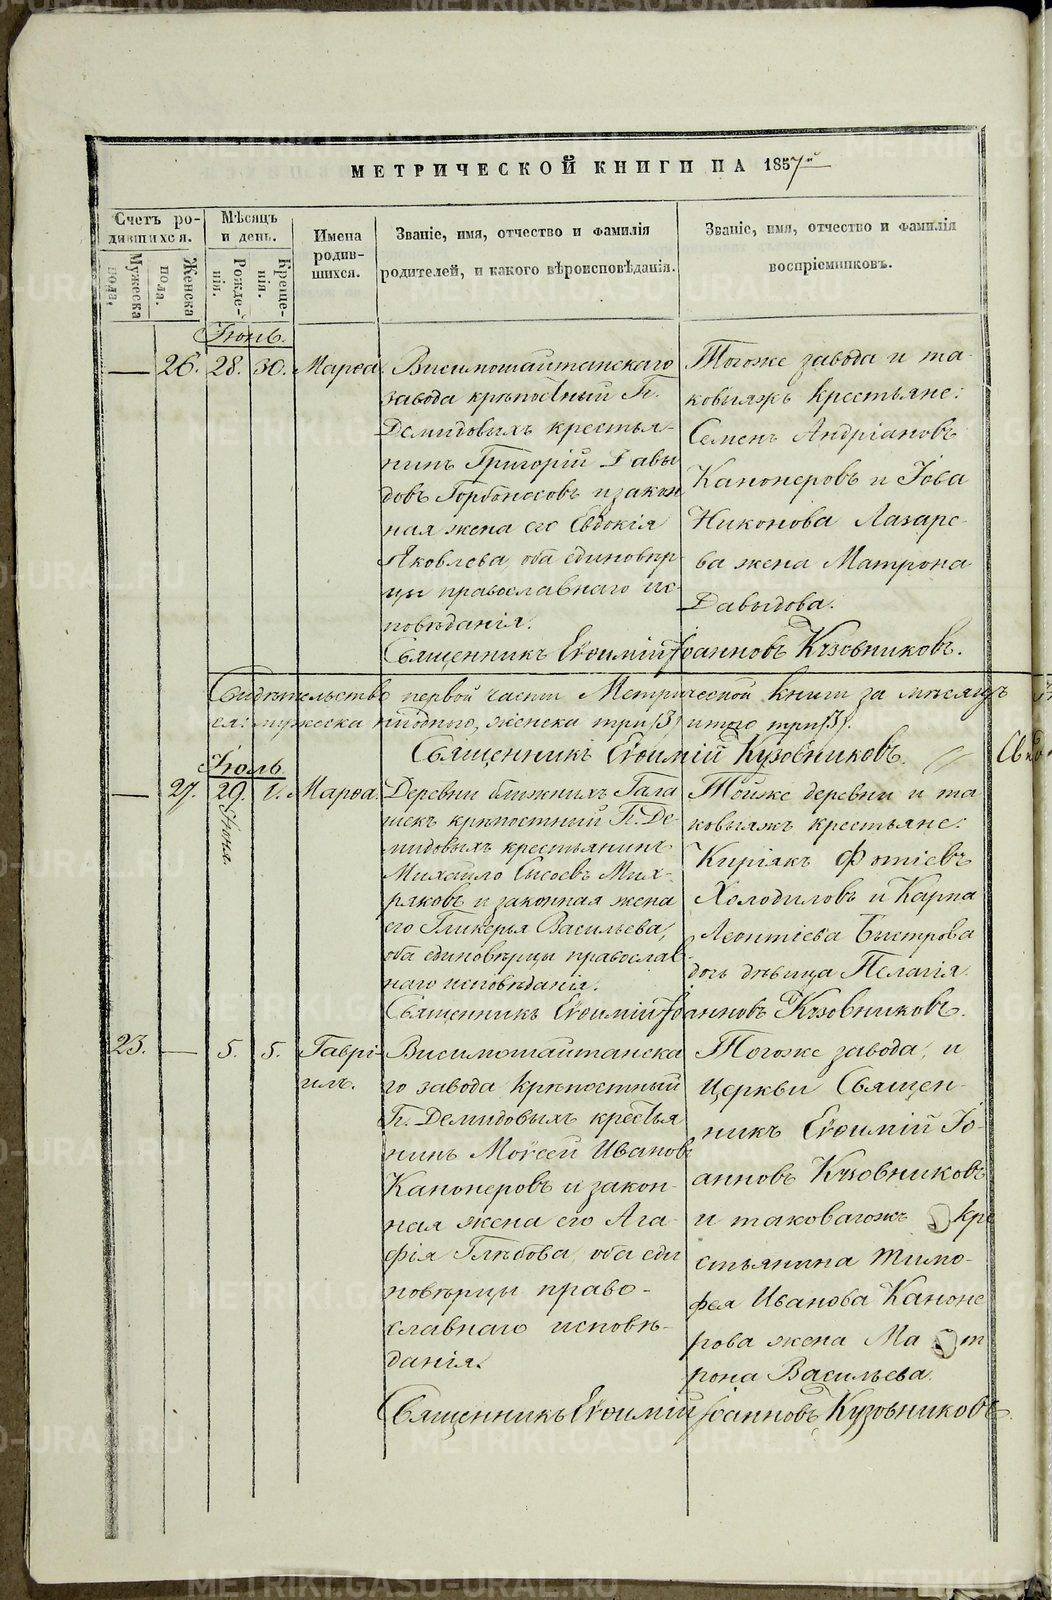 МЕТРИЧЕСКОЙ КНИГИ НА 1857й
Счетъ ро-
дившихся.
Мѣсяцъ
и день.
Имена
родив-
шихся.
Званіе, имя, отчество и фамилія
родителей, и какого вѣроисповѣданія.
Званіе, имя, отчество и фамилія
воспріемниковъ.
Мужеска
пола.
Женска
пола.
Рожде-
нія.
Креще-
нія.
Іюнь.
— 26. 28. 30. Марѳа.
Висимошайтанскаго
завода крѣпостный Г.
Демидовыхъ крестья-
нинъ Григорій Давы
довъ Горбоносовъ и закон
ная жена его Евдокія
Яковлева, оба единовѣр-
цы православнаго ис-
повѣданія.
Тогоже завода и та-
ковыяжъ крестьяне:
Семенъ Андріановъ
Канонеровъ и Іова
Никонова Лазаре-
ва жена Матрона
Давыдова.
Священникъ Евѳимій Іоанновъ Кузовниковъ.
Свидѣтельство первой части Метрической книги за мѣсяцъ
мужеска ниодного, женска три /3/ итого три /3/.
Священникъ Евѳимій Кузовниковъ.
Іюль
— 27. 29. Іюня 1. Марѳа.
Деревни ближнихъ Гала
шекъ крѣпостный Г. Де
мидовыхъ крестьянинъ
Михайло Сысоевъ Мих-
ряковъ и законная жена
его Гликерья Васильева,
оба единовѣрцы православ
наго исповѣданія.
Тойже деревни и та
ковыяжъ крестьяне:
Киріякъ Фотіевъ
Холодиловъ и Карпа
Леонтіева Быстрова
дочь дѣвица Пелагія.
Священникъ Евѳимій Іоанновъ Кузовниковъ.
23. — 5. 5. Гаврі-
илъ.
Висимошайтанска
го завода крѣпостный
Г. Демидовыхъ крестья
нинъ Моѵсей Ивановъ
Канонеровъ и закон-
ная жена его Ага-
фія Глѣбова, оба еди
новѣрцы право-
славнаго исповѣ-
данія.
Тогоже завода, и
Церкви Священ-
никъ Евѳимій Іо-
анновъ Кузовниковъ
и таковагожъ кре
стьянина Тимо-
фея Иванова Каноне
рова жена Мат
рона Васильева.
Священникъ Евѳимій Іоанновъ Кузовниковъ.
METRIKI.GASO-URAL.RU